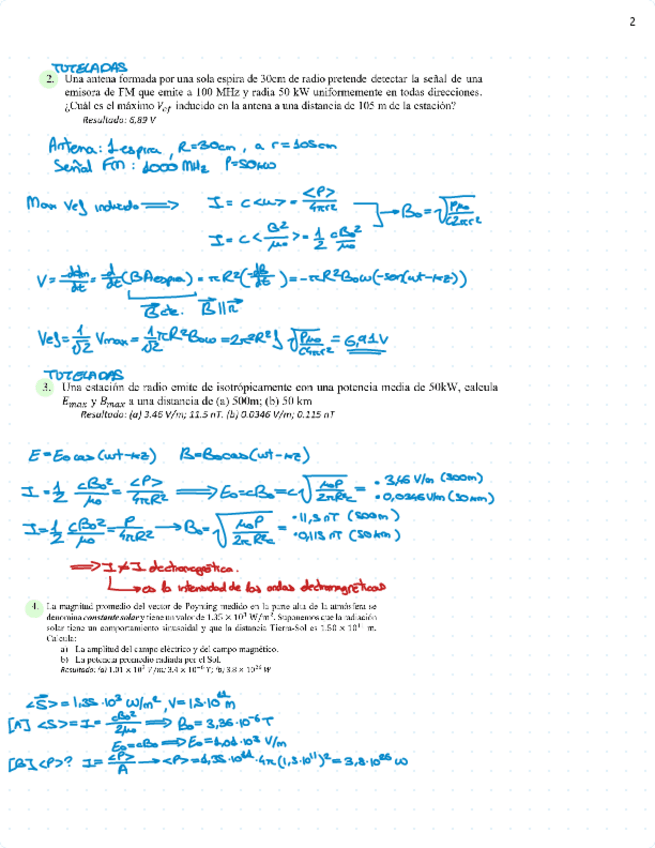 2
TUTELADAS
2. Una antena formada por una sola espira de 30cm de radio pretende detectar la señal de una
emisora de FM que emite a 100 MHz y radia 50 kW uniformemente en todas direcciones.
¿Cuál es el máximo V_ef inducido en la antena a una distancia de 105 m de la estación?
Resultado: 6,89 V
Antena: 1 espira, R=30cm, a r=105cm
Señal Fm: 1000 MHz P=50kW
Max Vef inducido ⟹ I = c<u> = <P>/4πr² → B₀ = √(Pμ₀/C2πr²)
I = c<B²/μ₀> = 1/2 cB₀²/μ₀
V = -dϕm/dt = d/dt (BAespira) = πR²(-dB/dt) = -πR²B₀ω(-sen(ωt-kz))
B cte. B∥n
Vef = 1/√2 Vmax = 1/√2 πR²B₀ω = 2π²R²f √(Pμ₀/C4πr²) = 6,91V
TUTELADAS
3. Una estación de radio emite de isotrópicamente con una potencia media de 50kW, calcula
E_max y B_max a una distancia de (a) 500m; (b) 50 km
Resultado: (a) 3.46 V/m; 11.5 nT. (b) 0.0346 V/m; 0.115 nT
E=E₀cos(ωt-kz) B=B₀cos(ωt-kz)
I = 1/2 cB₀²/μ₀ = <P>/4πR² ⟹ E₀=cB₀=c√(μ₀P/2πR²c) = · 3,46 V/m (500m)
· 0,0346 V/m (50km)
I = 1/2 cB₀²/μ₀ = P/4πR² → B₀ = √(μ₀P/2πR²c) = · 11,5 nT (500m)
· 0,115 nT (50km)
⟹ I ≠ I electromagnética.
↳ es la intensidad de las ondas electromagnéticas
4. La magnitud promedio del vector de Poynting medido en la parte alta de la atmósfera se
denomina constante solar y tiene un valor de 1.35 × 10³ W/m². Suponemos que la radiación
solar tiene un comportamiento sinusoidal y que la distancia Tierra-Sol es 1.50 × 10¹¹ m.
Calcula:
a) La amplitud del campo eléctrico y del campo magnético.
b) La potencia promedio radiada por el Sol.
Resultado: (a) 1.01 × 10³ V/m; 3.4 × 10⁻⁶ T; (b) 3.8 × 10²⁶ W
<S> = 1,35·10³ W/m², V=1,5·10¹¹m
[A] <S> = I = cB₀²/2μ₀ ⟹ B₀ = 3,36·10⁻⁶T
E₀=cB₀ ⟹ E₀=1,01·10³ V/m
[B] <P>? I = <P>/A → <P>=1,35·10¹¹·4π(1,5·10¹¹)² = 3,8·10²⁶ W